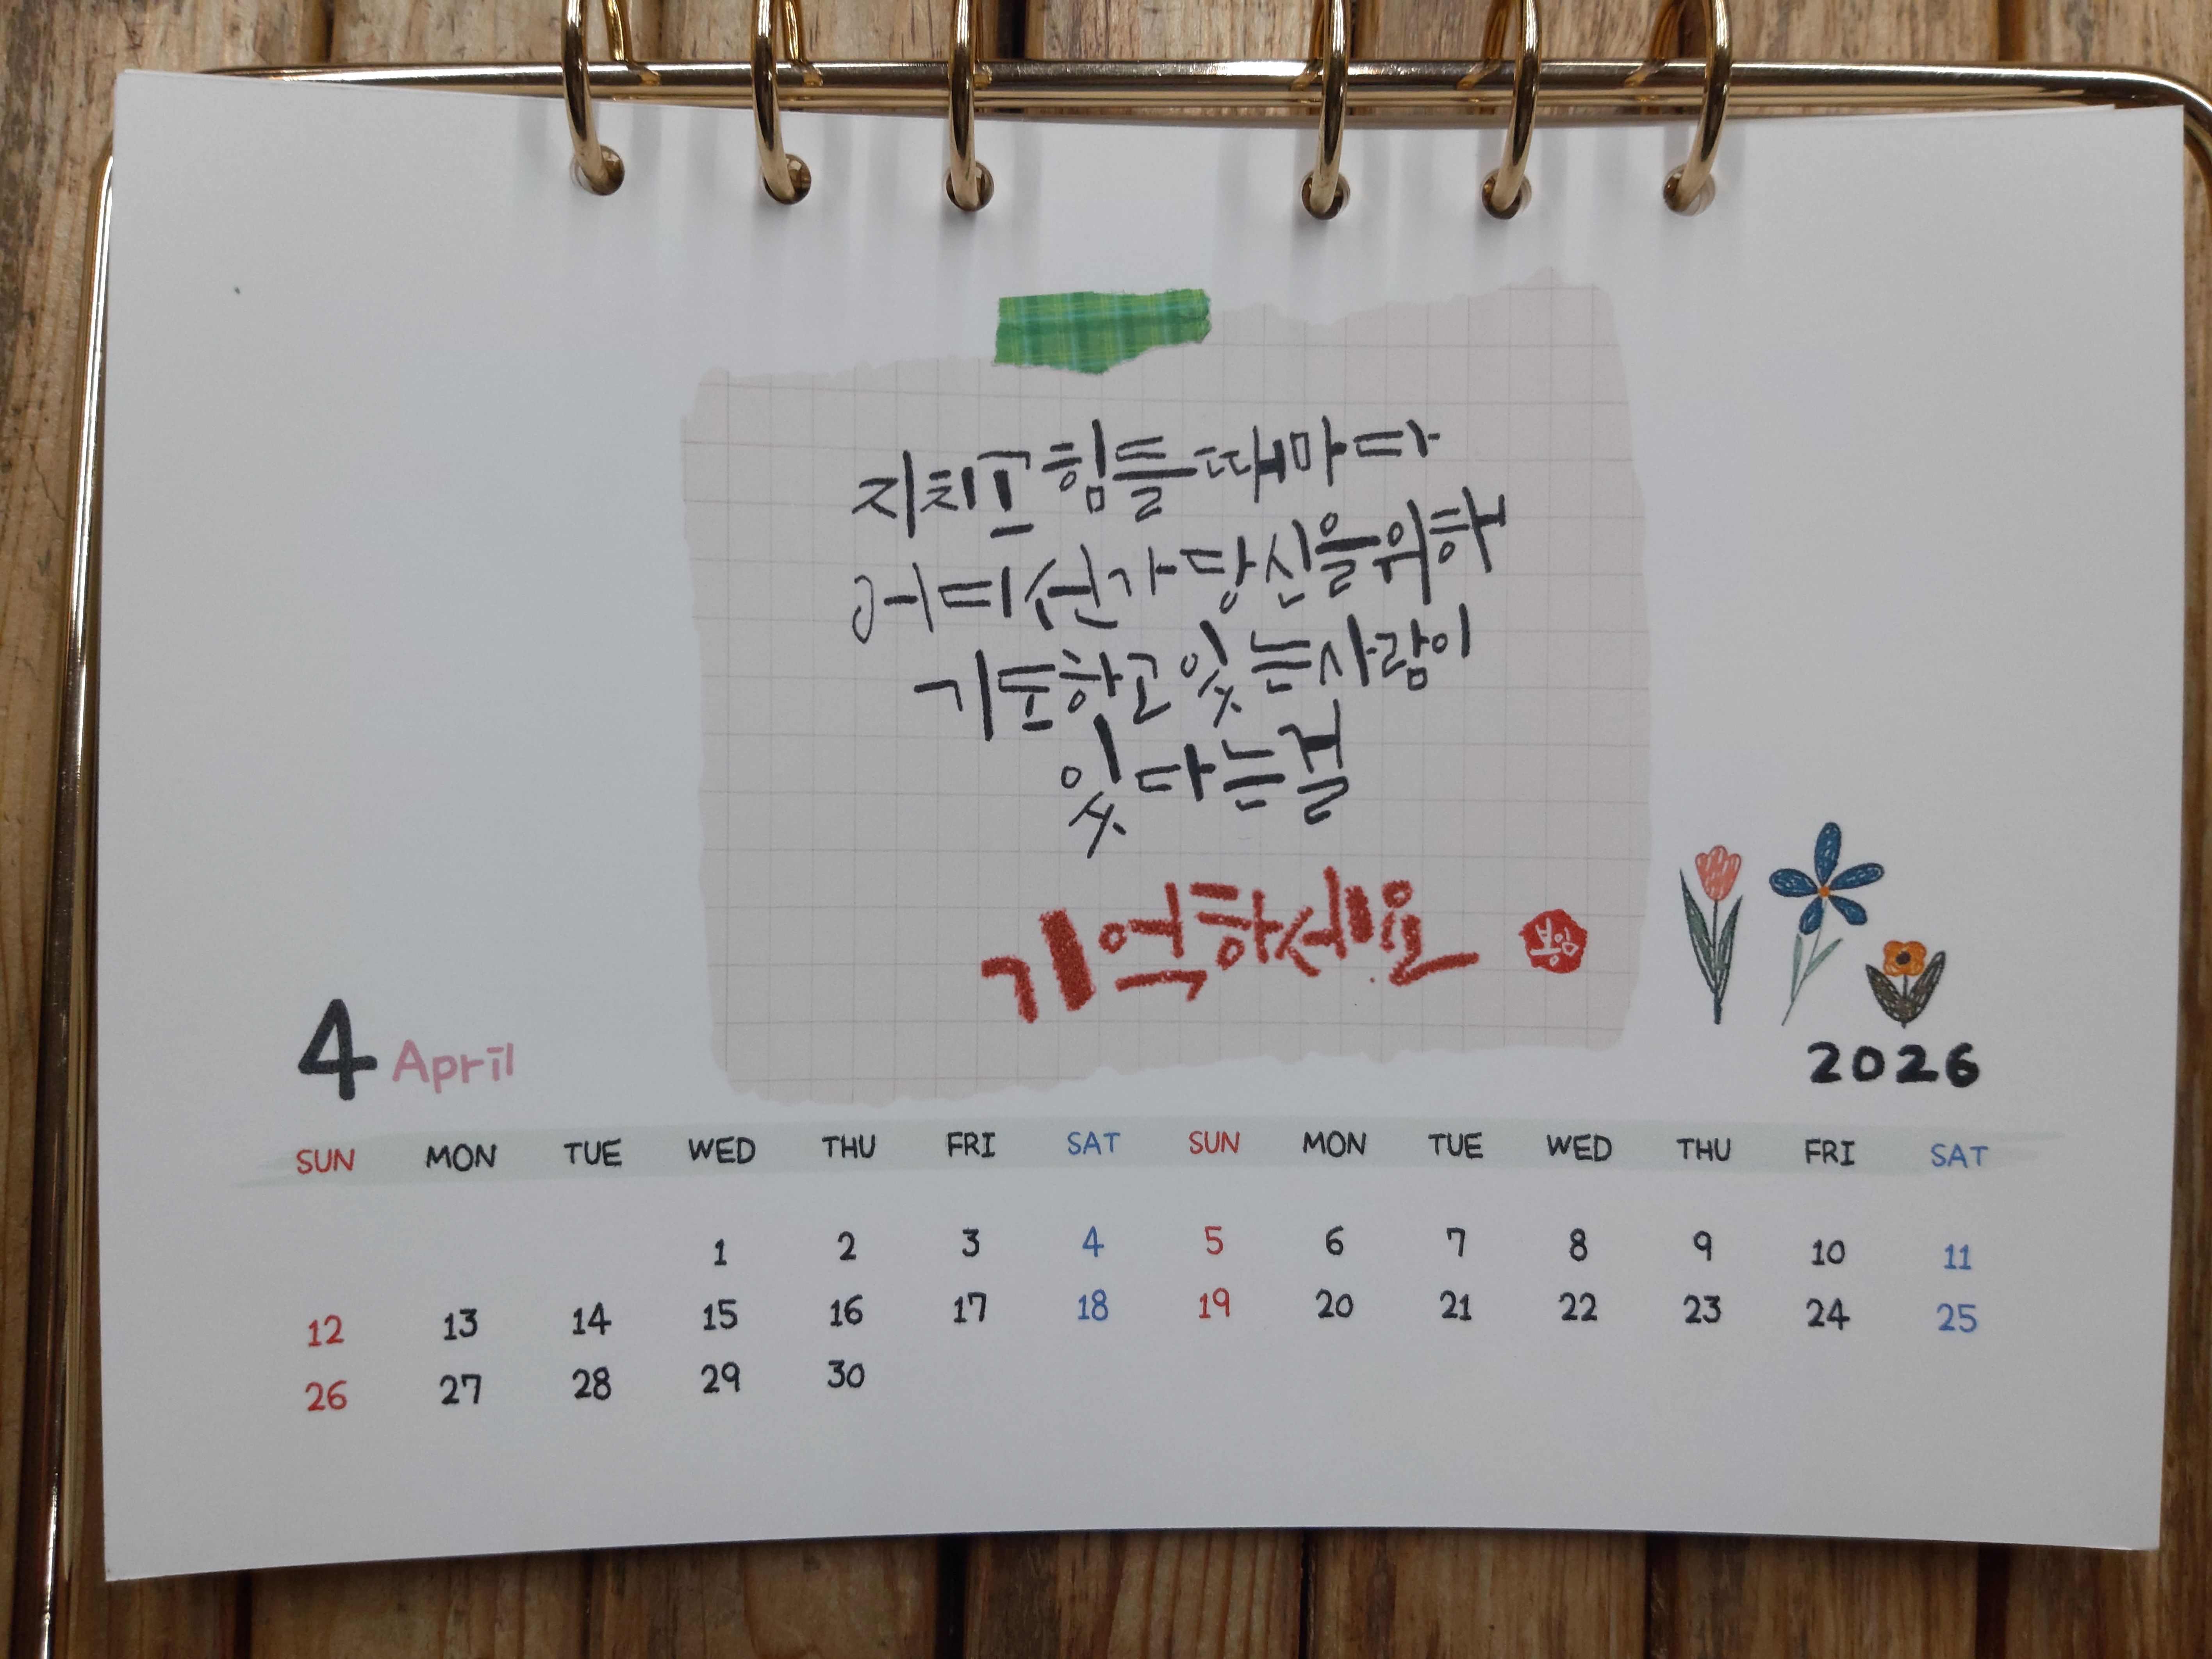 지치고 힘들때마다
어디선가 당신을 위해
기도하고 있는 사람이
있다는걸
기억하세요
보임
4 April
2026
SUN MON TUE WED THU FRI SAT SUN MON TUE WED THU FRI SAT
1 2 3 4 5 6 7 8 9 10 11
12 13 14 15 16 17 18 19 20 21 22 23 24 25
26 27 28 29 30